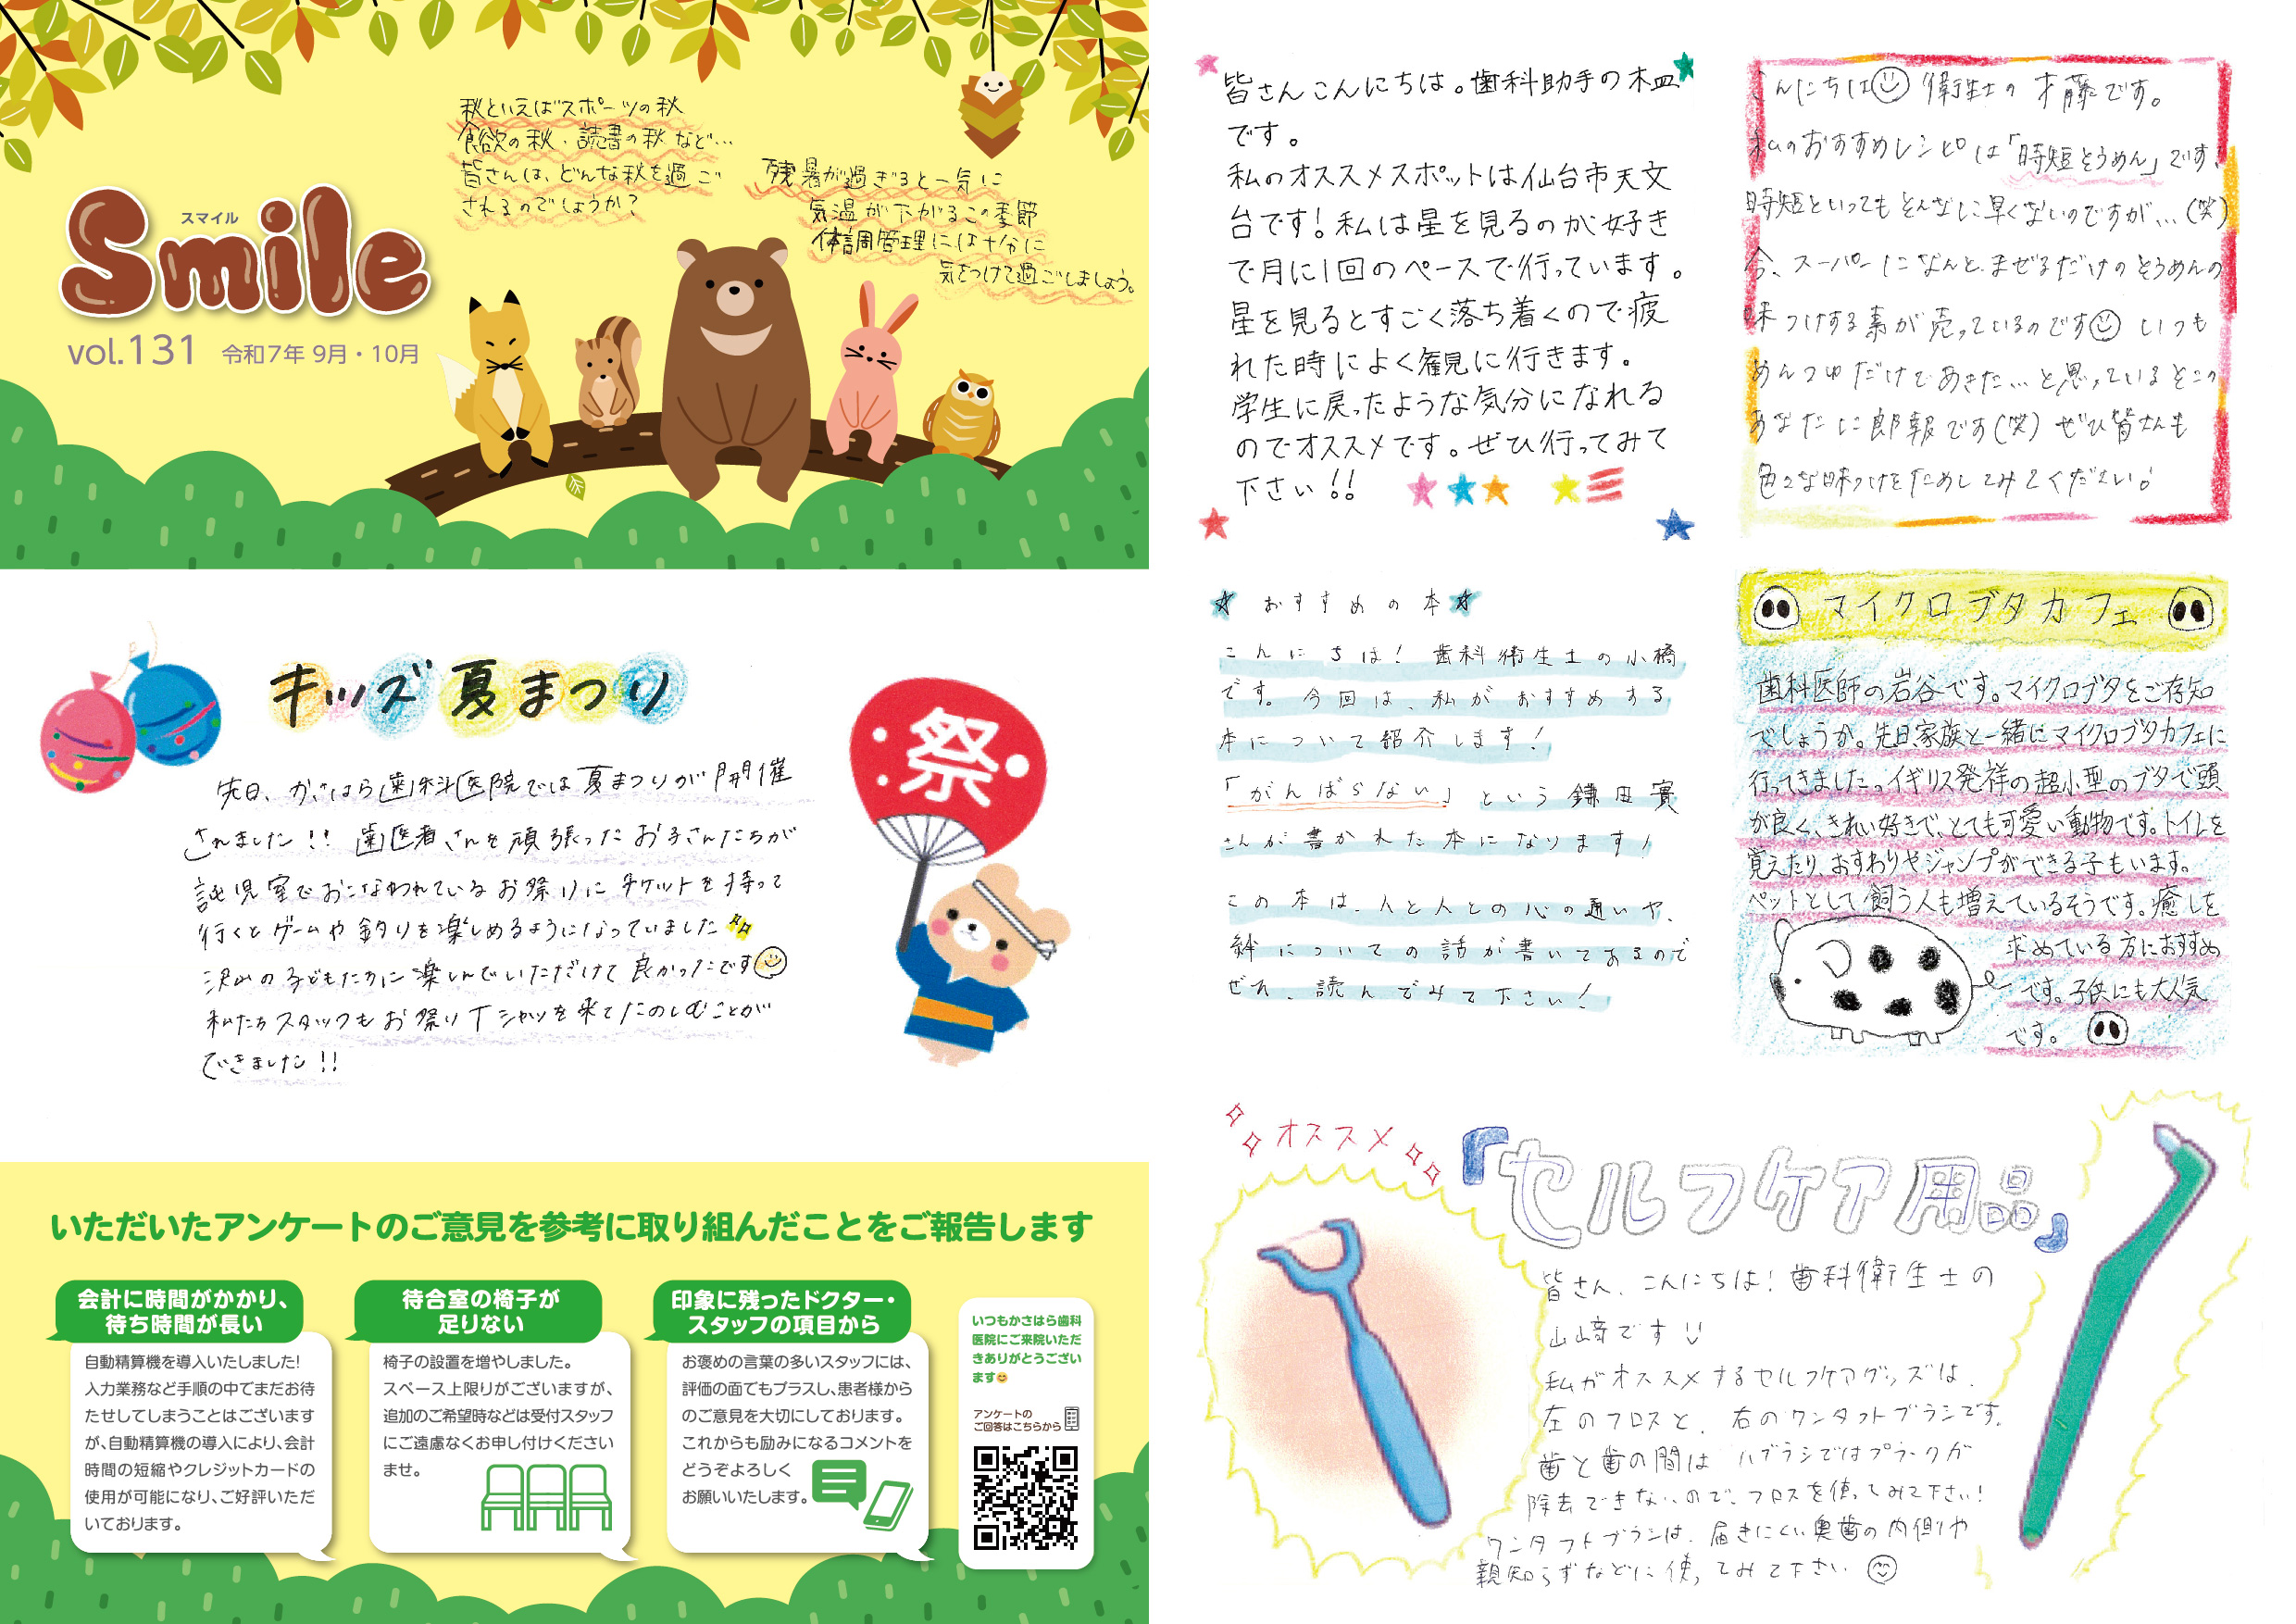 秋といえばスポーツの秋
食欲の秋、読書の秋など…
皆さんは、どんな秋を過ご
されるのでしょうか？
残暑が過ぎると一気に
気温が下がるこの季節
体調管理には十分に
気をつけて過ごしましょう。
スマイル
Smile
vol.131 令和7年 9月・10月
キッズ夏まつり
先日、かさはら歯科医院では夏まつりが開催
されました!! 歯医者さんを頑張ったお子さんたちが
託児室でおこなわれているお祭りにチケットを持って
行くとゲームや釣りを楽しめるようになっていました
沢山の子どもたちに楽しんでいただけて良かったです
私たちスタッフもお祭りTシャツを来てたのしむことが
できました!!
祭
いただいたアンケートのご意見を参考に取り組んだことをご報告します
会計に時間がかかり、
待ち時間が長い
自動精算機を導入いたしました!
入力業務など手順の中でまだお待
たせしてしまうことはございます
が、自動精算機の導入により、会計
時間の短縮やクレジットカードの
使用が可能になり、ご好評いただ
いております。
待合室の椅子が
足りない
椅子の設置を増やしました。
スペース上限りがございますが、
追加のご希望時などは受付スタッフ
にご遠慮なくお申し付けください
ませ。
印象に残ったドクター・
スタッフの項目から
お褒めの言葉の多いスタッフには、
評価の面でもプラスし、患者様から
のご意見を大切にしております。
これからも励みになるコメントを
どうぞよろしく
お願いいたします。
いつもかさはら歯科
医院にご来院いただ
きありがとうござい
ます😊
アンケートの
ご回答はこちらから
皆さんこんにちは。歯科助手の木皿
です。
私のオススメスポットは仙台市天文
台です！私は星を見るのが好き
で月に1回のペースで行っています。
星を見るとすごく落ち着くので疲
れた時によく観に行きます。
学生に戻ったような気分になれる
のでオススメです。ぜひ行ってみて
下さい!!
こんにちは 衛生士の才藤です。
私のおすすめレシピは「時短そうめん」です、
時短といってもそんなに早くないのですが…(笑)
今、スーパーになんと、まぜるだけのそうめんの
味つけする素が売っているのです いつも
めんつゆだけであきた…と思っているそこの
あなたに朗報です(笑) ぜひ皆さんも
色々な味つけをためしてみてください!
☆おすすめの本☆
こんにちは！歯科衛生士の小橋
です。今回は、私がおすすめする
本について紹介します！
「がんばらない」という鎌田實
さんが書かれた本になります！
この本は、人と人との心の通いや、
絆についての話が書いてあるので
ぜひ、読んでみて下さい！
マイクロブタカフェ
歯科医師の岩谷です。マイクロブタをご存知
でしょうか。先日家族と一緒にマイクロブタカフェに
行ってきました。イギリス発祥の超小型のブタで頭
が良く、きれい好きで、とても可愛い動物です。トイレを
覚えたり、おすわりやジャンプができる子もいます。
ペットとして飼う人も増えているそうです。癒しを
求めている方におすすめ
です。子供にも大人気
です。
オススメ
『セルフケア用品』
皆さん、こんにちは！歯科衛生士の
山崎です
私がオススメするセルフケアグッズは、
左のフロスと、右のワンタフトブラシです。
歯と歯の間はハブラシではプラークが
除去できないので、フロスを使ってみて下さい！
ワンタフトブラシは、届きにくい奥歯の内側や
親知らずなどに使ってみて下さい